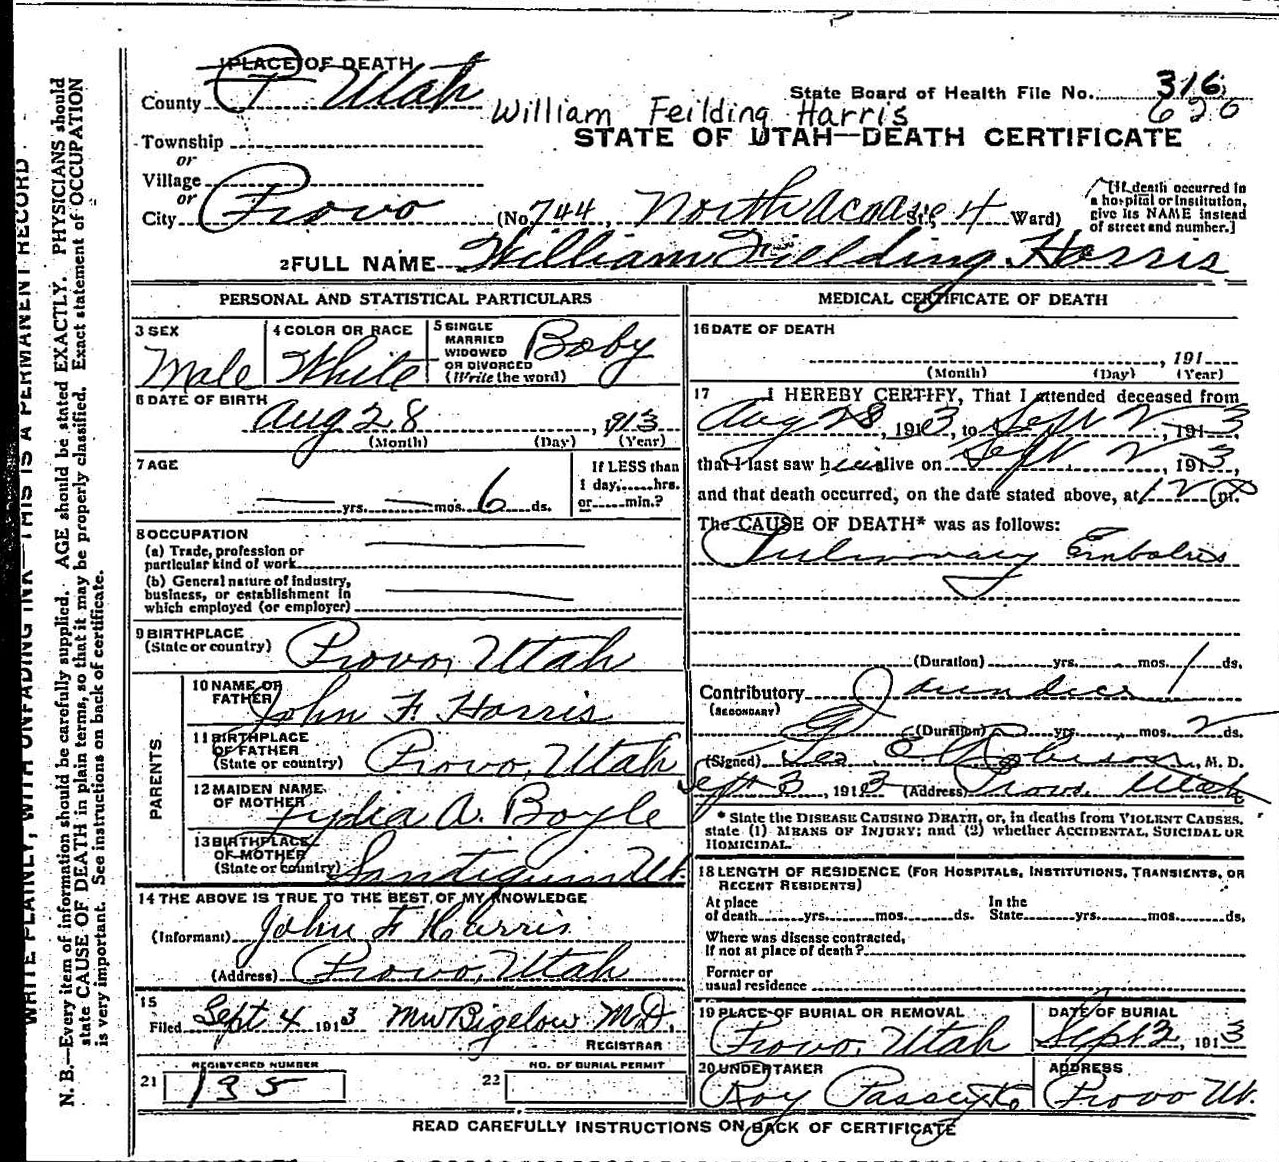 1 PLACE OF DEATH
County P Utah
State Board of Health File No. 316
620
William Feilding Harris
STATE OF UTAH—DEATH CERTIFICATE
Township
or
Village
or
City Provo (No. 744, North Academy St.; 4 Ward)
[If death occurred in
a hospital or institution,
give its NAME instead
of street and number.]
2 FULL NAME William Fielding Harris
PERSONAL AND STATISTICAL PARTICULARS
3 SEX
Male
4 COLOR OR RACE
White
5 SINGLE
MARRIED
WIDOWED
OR DIVORCED
(Write the word)
Baby
6 DATE OF BIRTH
Aug 28, 1913
(Month) (Day) (Year)
7 AGE
yrs. mos. 6 ds.
If LESS than
1 day, hrs.
or min.?
8 OCCUPATION
(a) Trade, profession or
particular kind of work
(b) General nature of industry,
business, or establishment in
which employed (or employer)
9 BIRTHPLACE
(State or country) Provo, Utah
PARENTS
10 NAME OF
FATHER John F. Harris
11 BIRTHPLACE
OF FATHER
(State or country) Provo, Utah
12 MAIDEN NAME
OF MOTHER Lydia A. Boyle
13 BIRTHPLACE
OF MOTHER
(State or country) Santiquin Ut.
14 THE ABOVE IS TRUE TO THE BEST OF MY KNOWLEDGE
(Informant) John F Harris
(Address) Provo, Utah
15
Filed Sept 4 1913 MW Bigelow M.D.
REGISTRAR
REGISTERED NUMBER
21 135
NO. OF BURIAL PERMIT
22
MEDICAL CERTIFICATE OF DEATH
16 DATE OF DEATH
, 191
(Month) (Day) (Year)
17 I HEREBY CERTIFY, That I attended deceased from
Aug 28, 1913, to Sept 2, 1913,
that I last saw him alive on Sept 2, 1913,
and that death occurred, on the date stated above, at 12 m.
The CAUSE OF DEATH* was as follows:
Pulmonary Embolus
(Duration) yrs. mos. 1 ds.
Contributory Jaundice
(SECONDARY)
(Duration) yrs. mos. 2 ds.
(Signed) Geo E Robison, M. D.
Sept 3, 1913 (Address) Provo Utah
* State the DISEASE CAUSING DEATH, or, in deaths from VIOLENT CAUSES,
state (1) MEANS OF INJURY; and (2) whether ACCIDENTAL, SUICIDAL OR
HOMICIDAL.
18 LENGTH OF RESIDENCE (FOR HOSPITALS, INSTITUTIONS, TRANSIENTS, OR
RECENT RESIDENTS)
At place
of death yrs. mos. ds.
In the
State yrs. mos. ds.
Where was disease contracted,
if not at place of death?
Former or
usual residence
19 PLACE OF BURIAL OR REMOVAL
Provo, Utah
DATE OF BURIAL
Sept 3, 1913
20 UNDERTAKER
Roy Passey
ADDRESS
Provo Ut.
READ CAREFULLY INSTRUCTIONS ON BACK OF CERTIFICATE
WRITE PLAINLY, WITH UNFADING INK—THIS IS A PERMANENT RECORD
N. B.—Every item of information should be carefully supplied. AGE should be stated EXACTLY. PHYSICIANS should
state CAUSE OF DEATH in plain terms, so that it may be properly classified. Exact statement of OCCUPATION
is very important. See instructions on back of certificate.